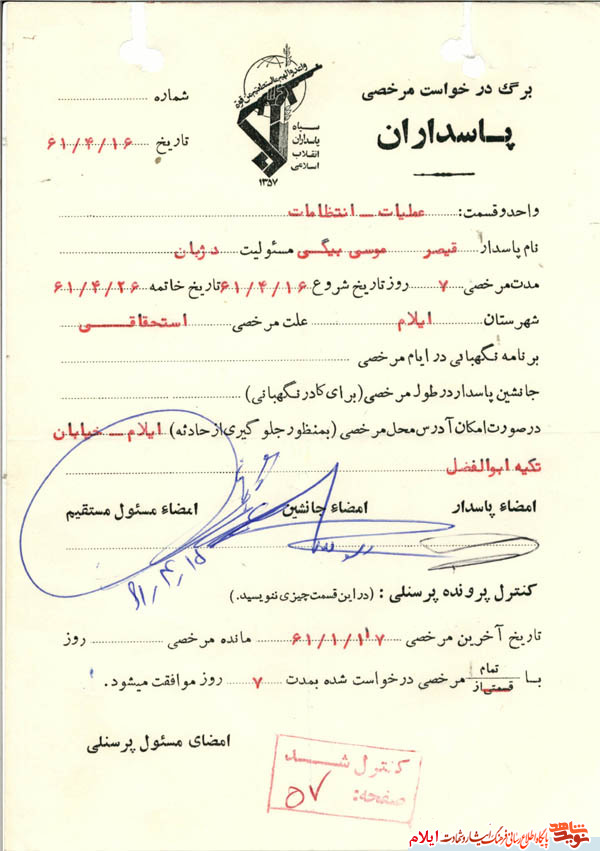 برگ درخواست مرخصی
پاسداران
شماره
تاریخ ۶۱/۴/۱۶
سپاه
پاسداران
انقلاب
اسلامی
۱۳۵۷
واحد و قسمت: عملیات ــ انتظامات
نام پاسدار قیصر موسی بیگی مسئولیت دژبان
مدت مرخصی ۷ روز تاریخ شروع ۶۱/۴/۱۶ تاریخ خاتمه ۶۱/۴/۲۶
شهرستان ایلام علت مرخصی استحقاقی
برنامه نگهبانی در ایام مرخصی
جانشین پاسدار در طول مرخصی (برای کادر نگهبانی)
در صورت امکان آدرس محل مرخصی (بمنظور جلوگیری از حادثه) ایلام ــ خیابان
تکیه ابوالفضل
امضاء پاسدار امضاء جانشین امضاء مسئول مستقیم
۶۱/۴/۱۵
کنترل پرونده پرسنلی: (در این قسمت چیزی ننویسید.)
تاریخ آخرین مرخصی ۶۱/۱/۱۷ مانده مرخصی روز
با تمام / قسمتی از مرخصی درخواست شده بمدت ۷ روز موافقت میشود.
امضای مسئول پرسنلی
کنترل شد
صفحه: ۵۷
نوید شاهد پایگاه اطلاع رسانی فرهنگ ایثار و شهادت ایلام